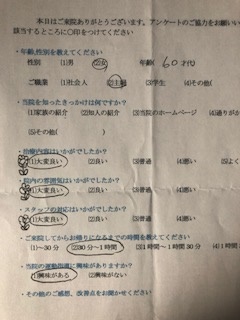 本日はご来院ありがとうございます。アンケートのご協力をお願いい
該当するところに○印をつけてください
・年齢,性別を教えてください
性別 (1)男 (2)女 年齢( 60才代
ご職業 (1)社会人 (2)主婦 (3)学生 (4)その他(
・当院を知ったきっかけは何ですか?
(1)家族の紹介 (2)知人の紹介 (3)当院のホームページ (4)通りが
(5)その他( )
・治療内容はいかがでしたか?
(1)大変良い (2)良い (3)普通 (4)悪い
・院内の雰囲気はいかがでしたか?
(1)大変良い (2)良い (3)普通 (4)悪い
・スタッフの対応はいかがでしたか?
(1)大変良い (2)良い (3)普通 (4)悪い
・ご来院してからお帰りになるまでの時間を教えてください
(1)~30分 (2)30分~1時間 (3)1時間~1時間30分 (4)1時
・当院の運動指導に興味がありますか?
(1)興味がある (2)興味がない
・その他のご感想、改善点をお聞かせください